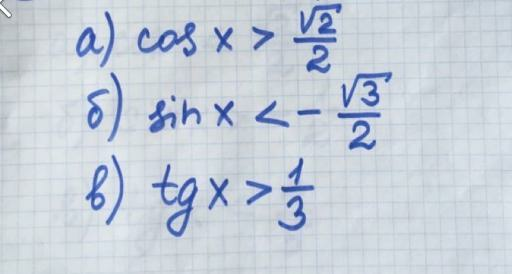 а) cos x > √2/2
б) sin x < - √3/2
в) tg x > 1/3